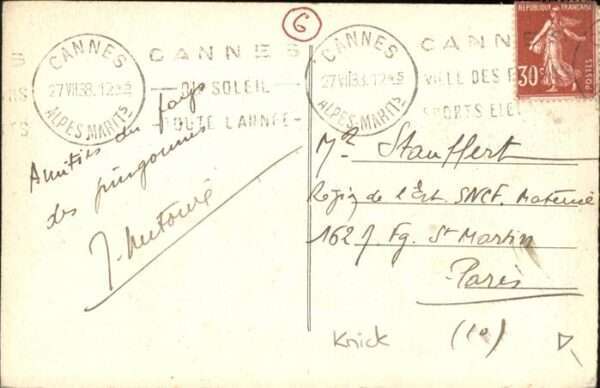 6
CANNES
27 VII 38. 12 45
ALPES MARIT^S
CANNES
DU SOLEIL
TOUTE L'ANNÉE
CANNES
27 VII 38. 12 45
ALPES MARIT^S
CANN
VILLE DES
SPORTS ELE
REPUBLIQUE FRANÇAISE
30c
POSTES
Amitiés du pays
des
J.
Mr. Stauffert
Région de l'Est SNCF. Matériel
162 Fg. St Martin
Paris
(10)
Knick